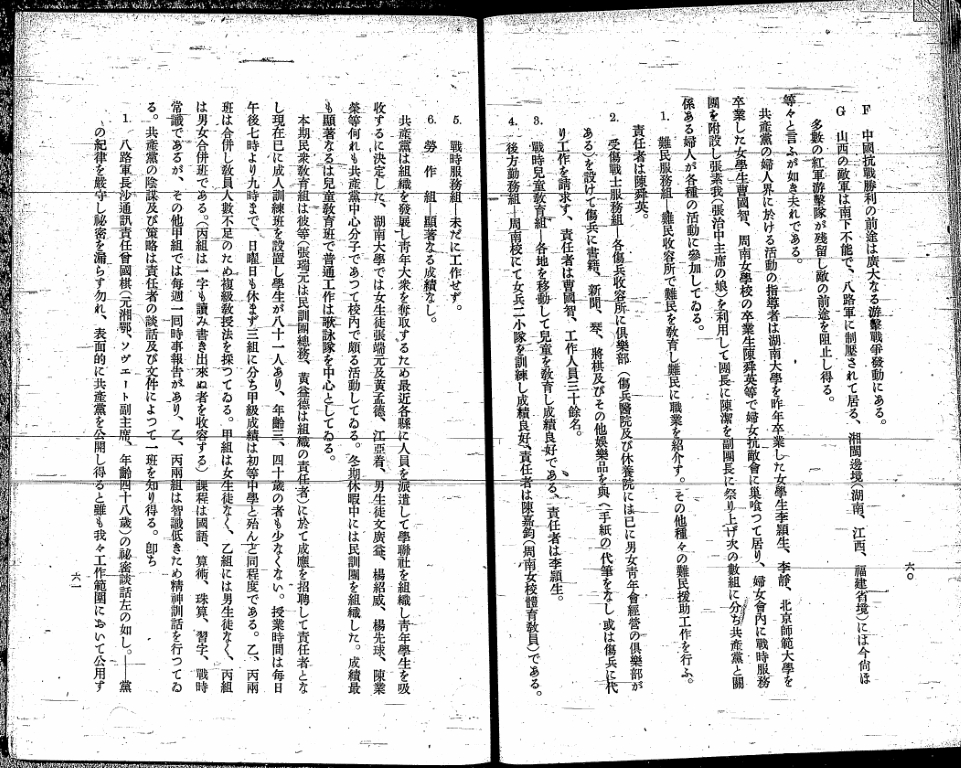 F 中國抗戰勝利の前途は廣大なる游擊戰爭發動にある。
G 山西の敵軍は南下不能で、八路軍に制壓されて居る、湘閩邊境(湖南、江西、福建省境)には今尙ほ
多數の紅軍游擊隊が殘留し敵の前途を阻止し得る。
等々と言ふが如き夫れである。
共產黨の婦人界に於ける活動の指導者は湖南大學を昨年卒業した女學生李穎生、李靜、北京師範大學を
卒業した女學生曹國智、周南女學校の卒業生陳舜英等で婦女抗敵會に巢喰つて居り、婦女會內に戰時服務
團を附設し張素我(張治中主席の娘)を利用して團長に陳潔を副團長に祭り上げ次の數組に分ち共產黨と關
係ある婦人が各種の活動に參加してゐる。
1. 難民服務組―難民收容所で難民を敎育し難民に職業を紹介す。その他種々の難民援助工作を行ふ。
責任者は陳舜英。
2. 受傷戰士服務組―各傷兵收容所に俱樂部(傷兵醫院及び休養院には已に男女靑年會經營の俱樂部が
ある)を設けて傷兵に書籍、新聞、琴、將棋及びその他娛樂品を與へ手紙の代筆をなし或は傷兵に代
り工作を請求す、責任者は曹國智、工作人員三十餘名。
3. 戰時兒童敎育組―各地を移動して兒童を敎育し成績良好である、責任者は李穎生。
4. 後方勤務組―周南校にて女兵二小隊を訓練し成績良好、責任者は陳嘉鈞(周南女校體育敎員)である。
六〇
5. 戰時服務組―未だに工作せず。
6. 勞作組―顯著なる成績なし。
共產黨は組織を發展し靑年大衆を奪取するため最近各縣に人員を派遣して學聯社を組織し靑年學生を吸
收するに決定した、湖南大學では女生徒張端元及黃孟德、江亞着、男生徒文廣益、楊紹威、楊先球、陳業
榮等何れも共產黨中心分子であつて校內で頗る活動してゐる。冬期休暇中には民訓團を組織した。成績最
も顯著なるは兒童敎育班で普通工作は歌詠隊を中心としてゐる。
本期民衆敎育組は彼等(張瑞元は民訓團總務、黃益德は組織の責任者)に於て成應を招聘して責任者とな
し現在已に成人訓練班を設置し學生が八十一人あり、年齡三、四十歲の者も少なくない。授業時間は每日
午後七時より九時まで、日曜日も休まず三組に分ち甲級成績は初等中學と殆んど同程度である。乙、丙兩
班は合併し敎員人數不足のため複級敎授法を採つてゐる。甲組は女生徒なく、乙組には男生徒なく、丙組
は男女合併班である。(丙組は一字も讀み書き出來ぬ者を收容する)課程は國語、算術、珠算、習字、戰時
常識であるが、その他甲組では每週一回時事報告があり、乙、丙兩組は智識低きため精神訓話を行つてゐ
る。共產黨の陰謀及び策略は責任者の談話及び文件によつて一班を知り得る。卽ち
1. 八路軍長沙通訊責任曾國棋(元湘鄂、ソヴエート副主席、年齡四十八歲)の祕密談話左の如し。―黨
の紀律を嚴守し祕密を漏らす勿れ、表面的に共產黨を公開し得ると雖も我々工作範圍において公用す
六一